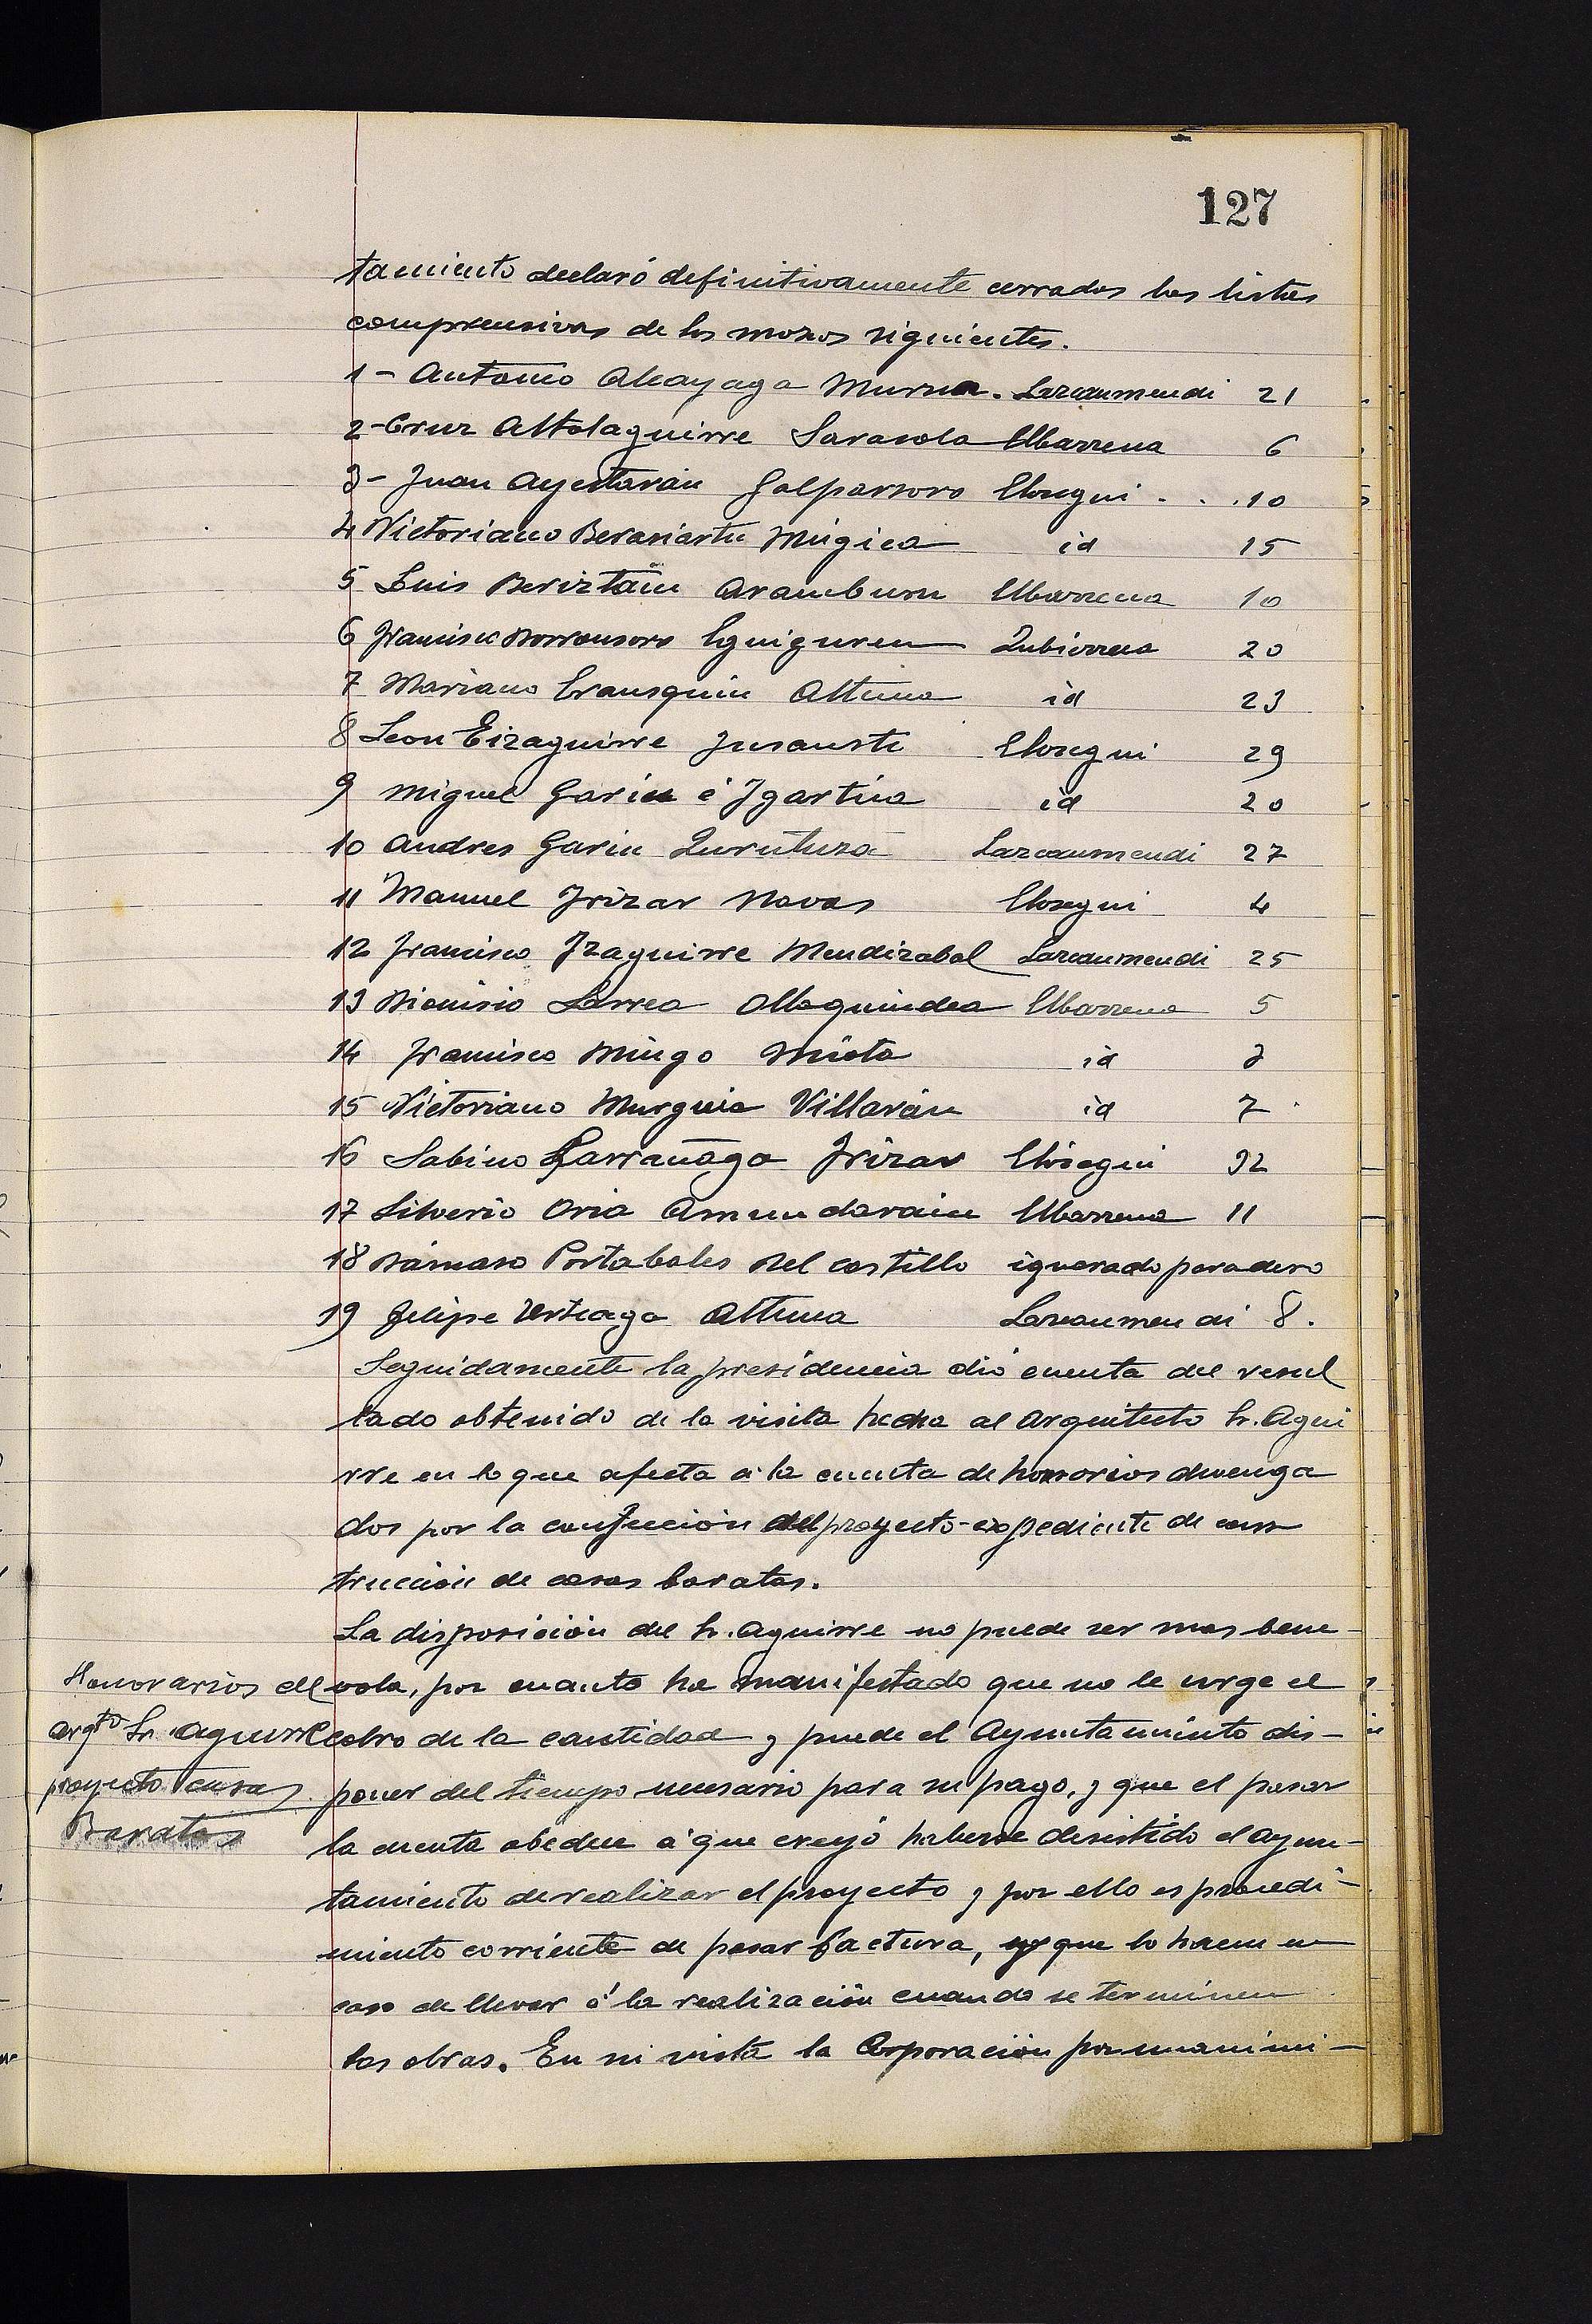 127
tamiento declaró definitivamente cerradas las listas
comprensivas de los mozos siguientes.
1 - Antonio Alcayaga Murua. Lazcaumendi 21
2 - Cruz Altolaguirre Sarasola Ubarrena 6
3 - Juan Ayestarán Galparsoro Elosegui . . . 10
4 Victoriano Berasiartu Múgica id 15
5 Luis Beriztain Aramburu Ubarrena 10
6 Francisco Dorronsoro Eguiguren Zubiarrena 20
7 Mariano Erausquin Altuna id 23
8 Leon Eizaguirre Insausti Elosegui 29
9 Miguel Garin é Igartúa id 20
10 Andres Garin Zurutuza Lazcaumendi 27
11 Manuel Irizar Navas Elosegui 4
12 Francisco Izaguirre Mendizabal Lazcaumendi 25
13 Dionisio Larrea Ollaquindea Ubarrena 5
14 Francisco Mingo id
15 Victoriano Murguia Villarán id 7
16 Sabino Larrañaga Irizar Elosegui 32
17 Silverio Oria Amundarain Ubarrena 11
18 Dámaso Portabales Del castillo ignorado paradero
19 Felipe Urteaga Altuna Lazcaumendi 8.
Seguidamente la presidencia dió cuenta del resul
tado obtenido de la visita hecha al Arquitecto Sr. Agui
rre en lo que afecta á la cuenta de honorarios devenga
dos por la confección del proyecto-expediente de cons
trucción de casas baratas.
La disposición del Sr. Aguirre no puede ser mas bene-
Honorarios del
Arqto Sr. Aguirre
proyecto casas
Baratas
vola, por cuanto ha manifestado que no le urge el
cobro de la cantidad y puede el Ayuntamiento dis-
poner del tiempo necesario para su pago, y que el pasar
la cuenta obedece á que creyó haberse desistido el Ayun-
tamiento de realizar el proyecto y por ello es procedi-
miento corriente de pasar factura, que lo hacen en
caso de llevar á la realización cuando se terminen
las obras. En su vista la Corporación por unanimi-